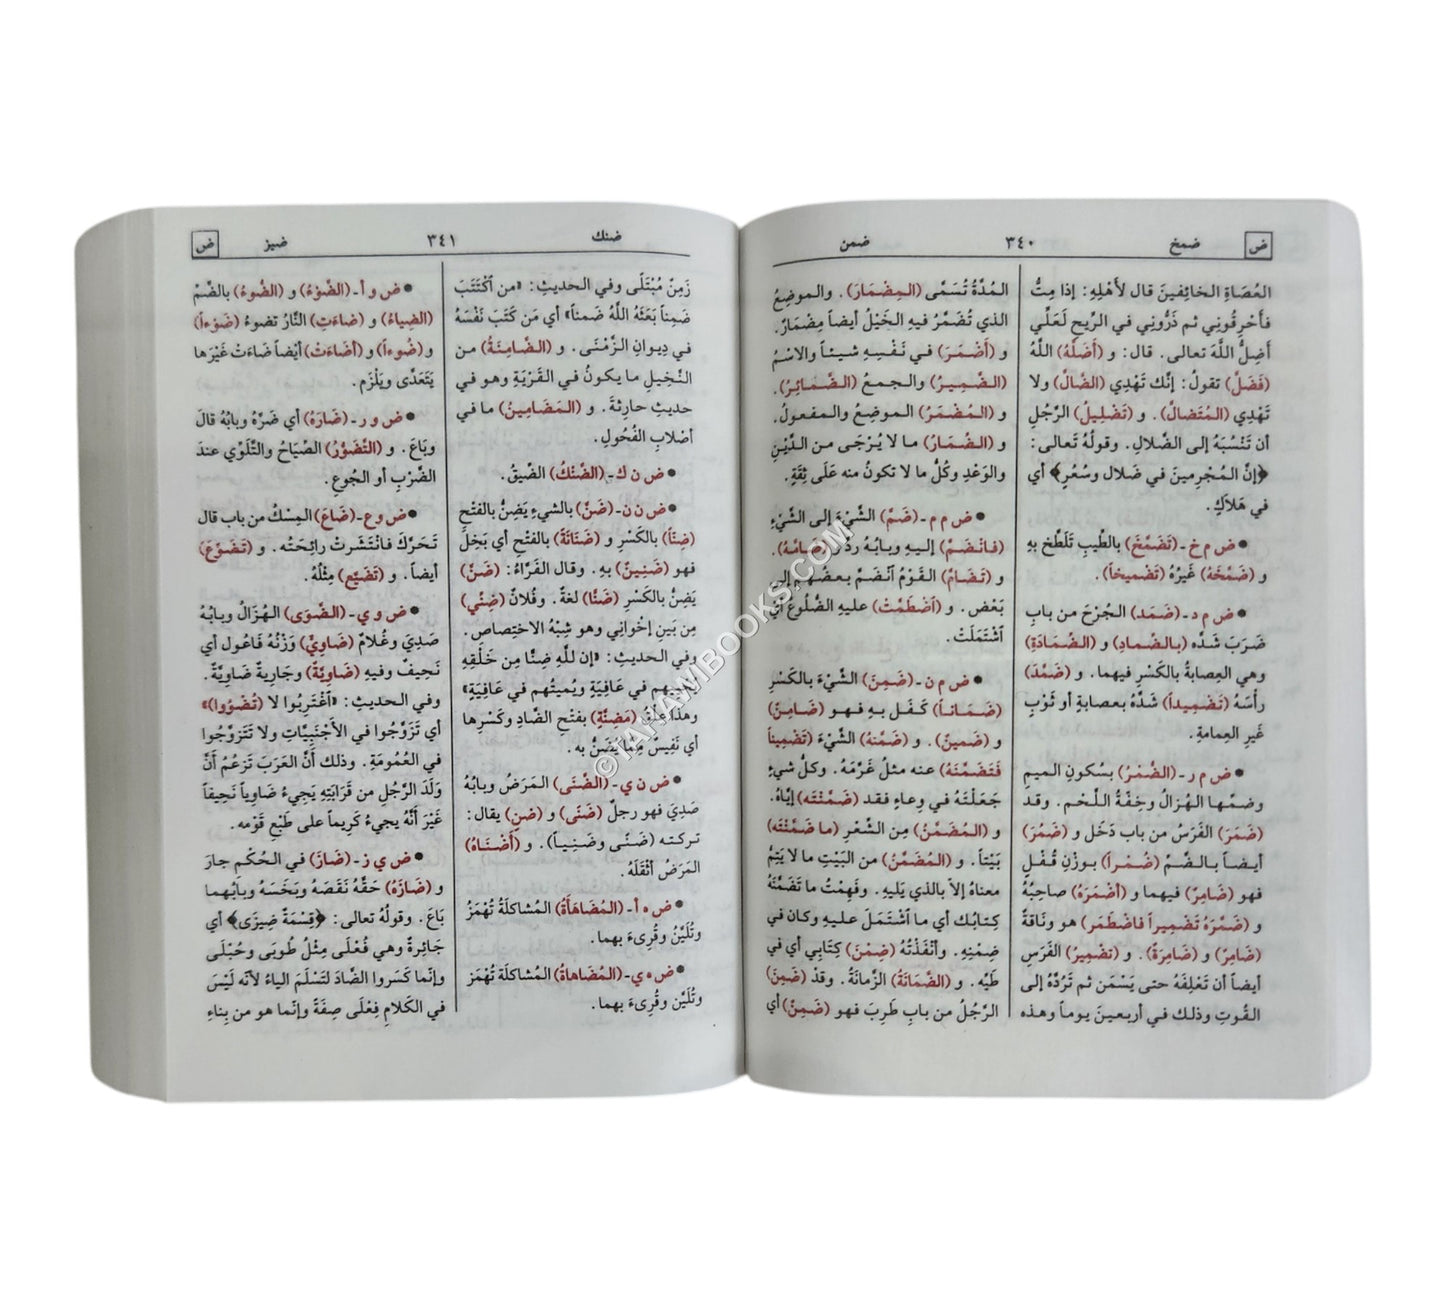 ض ضمخ ٣٤٠ ضمن
العُصَاةِ الخائِفينَ قال لأَهْلِهِ: إذا مِتُّ
فأَحْرِقُوني ثم ذَرُّوني في الرِّيحِ لَعَلِّي
أَضِلُّ اللَّهَ تعالى. قال: و (أَضَلَّهُ) اللَّهُ
(فَضَلَّ) تقولُ: إنَّك تَهْدِي (الضَّالَّ) ولا
تَهْدِي (المُتَضالَّ). و (تَضْلِيلُ) الرَّجُلِ
أن تَنْسُبَهُ إلى الضَّلالِ. وقولُهُ تَعالى:
﴿إنَّ المُجْرِمينَ في ضَلال وسُعُرٍ﴾ أي
في هَلاَكٍ.
● ض م خ ـ (تَضَمَّخَ) بالطِّيبِ تَلَطَّخ بهِ
و (ضَمَّخَهُ) غَيْرُهُ (تَضْميخاً).
● ض م د ـ (ضَمَد) الجُرْحَ من بابِ
ضَرَبَ شَدَّه (بالضِّمادِ) و (الضِّمَادَةِ)
وهي العِصابةُ بالكَسْرِ فيهما. و (ضَمَّدَ)
رأسَهُ (تَضْمِيداً) شَدَّهُ بعصابةٍ أو ثَوْبٍ
غَيرِ العِمامةِ.
● ض م ر ـ (الضُّمْرُ) بسُكونِ الميمِ
وضمِّها الهُزالُ وخِفَّةُ اللَّحْمِ. وقد
(ضَمَرَ) الفَرَسُ من باب دَخَل و (ضَمُرَ)
أيضاً بالضَّمِّ (ضُمْراً) بوزنِ قُفْلٍ
فهو (ضَامِرٌ) فيهما و (أضمَرَهُ) صاحِبُهُ
و (ضَمَّرَهُ تَضْمِيراً فاضْطَمَر) هو ونَاقةٌ
(ضَامِرٌ) و (ضَامِرَةٌ). و (تَضْمِيرُ) الفَرَسِ
أيضاً أن تَعْلِفَهُ حتى يَسْمَن ثم تَرُدَّهُ إلى
القُوتِ وذلك في أربعينَ يوماً وهذه
المُدَّةُ تُسَمَّى (المِضْمَارَ). والموضِعُ
الذي تُضَمَّرُ فيهِ الخَيْلُ أيضاً مِضْمَارٌ.
و (أَضْمَرَ) في نَفْسِهِ شيئاً والاسْمُ
(الضَّمِيرُ) والجمعُ (الضَّمائِرُ).
و (المُضْمَرُ) الموضِعُ والمفعولُ.
و (الضِّمَارُ) ما لا يُرْجَى من الدَّيْنِ
والوَعْدِ وكُلُّ ما لا تكونُ منه عَلَى ثِقَةٍ.
● ض م م ـ (ضَمَّ) الشَّيْءَ إلى الشَّيْءِ
(فانْضَمَّ) إليهِ وبابُهُ ردَّ و (ضَامَّهُ).
و (تَضَامَّ) القَوْمُ أنْضَمَّ بعضُهم إلى
بَعْض. و (اضْطَمَّتْ) عليهِ الضُّلُوعُ أيْ
اشْتَمَلَتْ.
● ض م ن ـ (ضَمِنَ) الشَّيْءَ بالكَسْرِ
(ضَمَاناً) كَفَل بهِ فهو (ضَامِنٌ)
و (ضَمينٌ). و (ضَمَّنهُ) الشَّيْءَ (تَضْمِيناً
فَتَضَمَّنَهُ) عنه مثلُ غَرَّمَهُ. وكلُّ شيءٍ
جَعَلْتَهُ في وِعاءٍ فقد (ضَمَّنْتَه) إيَّاهُ.
و (المُضَمَّنُ) مِن الشِّعْرِ (ما ضَمَّنْتَه)
بَيْتاً. و (المُضَمَّنُ) من البَيْتِ ما لا يَتِمُّ
معناهُ إلاّ بالذي يَليهِ. وفَهِمْتُ ما تَضَمَّنَهُ
كِتابُك أي ما اشْتَمَلَ عليهِ وكان في
ضِمْنِهِ. وأنْفَذْتُهُ (ضِمْنَ) كِتَابِي أي في
طَيِّه. و (الضَّمَانَةُ) الزَّمانةُ. وقدْ (ضَمِنَ)
الرَّجُلُ من بابِ طَرِبَ فهو (ضَمِنٌ) أي
ضنك ٣٤١ ضيز ض
زَمِنٌ مُبْتَلًى وفي الحديثِ: «من اكْتَتَبَ
ضَمِناً بَعَثَهُ اللَّهُ ضَمناً» أي مَن كَتَبَ نَفْسَهُ
في دِيوانِ الزَّمْنَى. و (الضَّامِنَةُ) من
النَّخِيلِ ما يكونُ في القَرْيَةِ وهو في
حديثِ حارثةَ. و (المَضَامِينُ) ما في
أصْلابِ الفُحُولِ.
● ض ن ك ـ (الضَّنْكُ) الضِّيقُ.
● ض ن ن ـ (ضَنَّ) بالشيءِ يَضِنُّ بالفَتْحِ
(ضِنًّا) بالكَسْرِ و (ضَنَانَةً) بالفَتْحِ أي بَخِلَ
فهو (ضَنِينٌ) بهِ. وقال الفَرَّاءُ: (ضَنَّ)
يَضِنُّ بالكَسْرِ (ضَنًّا) لغةٌ. وفُلانٌ (ضِنِّي)
مِن بَينِ إخْواني وهو شِبْهُ الاختِصاص.
وفي الحديثِ: «إن للَّهِ ضِنًّا مِن خَلْقِهِ
يُحييهم في عَافِيَةٍ ويُميتُهم في عَافِيَةٍ»
وهذا عِلْقُ (مَضِنَّةٍ) بفتحِ الضَّادِ وكَسْرِها
أي نَفِيسٌ مِمَّا يُضَنُّ به.
● ض ن ي ـ (الضَّنَى) المَرَضُ وبابُهُ
صَدِيَ فهو رجلٌ (ضَنًى) و (ضَنٍ) يقال:
تركته (ضَنًى وضَنِياً). و (أَضْنَاهُ)
المَرَضُ أثْقَلَهُ.
● ض ه أ ـ (المُضَاهَأَةُ) المُشاكلةُ تُهْمَزُ
وتُلَيَّنُ وقُرِىءَ بهما.
● ض ه ي ـ (المُضَاهاةُ) المُشاكلَة تُهْمَز
وتُلَيَّن وقُرِىءَ بهما.
● ض و أ ـ (الضَّوْءُ) و (الضُّوءُ) بالضَّمّ
(الضِياءُ) و (ضاءَتِ) النَّارُ تضوءُ (ضَوْءاً)
و (ضُوءاً) و (أضَاءَتْ) أيْضاً ضَاءَتْ غَيْرَها
يَتَعَدَّى ويَلْزَم.
● ض و ر ـ (ضَارَهُ) أي ضَرَّهُ وبابُهُ قالَ
وبَاعَ. و (التَّضَوُّرُ) الصِّيَاحُ والتَّلَوِّي عندَ
الضَّرْبِ أو الجُوعِ.
● ض و ع ـ (ضَاعَ) المِسْكُ من باب قال
تَحَرَّكَ فانْتَشَرتْ رائِحَتُه. و (تَضَوَّعَ)
أيضاً. و (تَضَيَّع) مِثْلُهُ.
● ض و ي ـ (الضَّوَى) الهُزَالُ وبابُهُ
صَدِيَ وغُلامٌ (ضَاوِيٌّ) وَزْنُهُ فَاعُول أي
نَحِيفٌ وفيهِ (ضَاوِيَّةٌ) وجَارِية ضَاوِيَّةٌ.
وفي الحديثِ: «اغْتَرِبُوا لا (تُضْوُوا)»
أي تَزَوَّجُوا في الأجْنَبِيَّاتِ ولا تَتَزَوَّجُوا
في العُمُومَةِ. وذلك أنَّ العَرَبَ تَزعُمُ أنَّ
وَلَدَ الرَّجُلِ من قَرَابَتِهِ يَجِيءُ ضَاوِياً نَحِيفاً
غَيْرَ أنَّهُ يجيءُ كَرِيماً على طَبْعِ قَوْمِه.
● ض ي ز ـ (ضَازَ) في الحُكْمِ جارَ
و (ضَازَهُ) حَقَّهُ نَقَصَهُ وبَخَسَهُ وبابُهما
بَاعَ. وقولُهُ تعالى: ﴿قِسْمَةٌ ضِيزَى﴾ أي
جَائِرةٌ وهي فُعْلَى مِثْلُ طُوبَى وحُبْلَى
وإنَّما كَسَروا الضَّادَ لتَسْلَمَ الياءُ لأنَّه لَيْسَ
في الكَلامِ فِعْلَى صِفَةً وإنَّما هو من بِنَاءِ
© TAHAWIBOOKS.COM